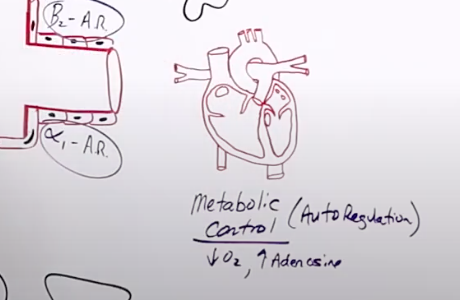 β₂-A.R.
α₁-A.R.
Metabolic
Control (AutoRegulation)
↓O₂, ↑Adenosine